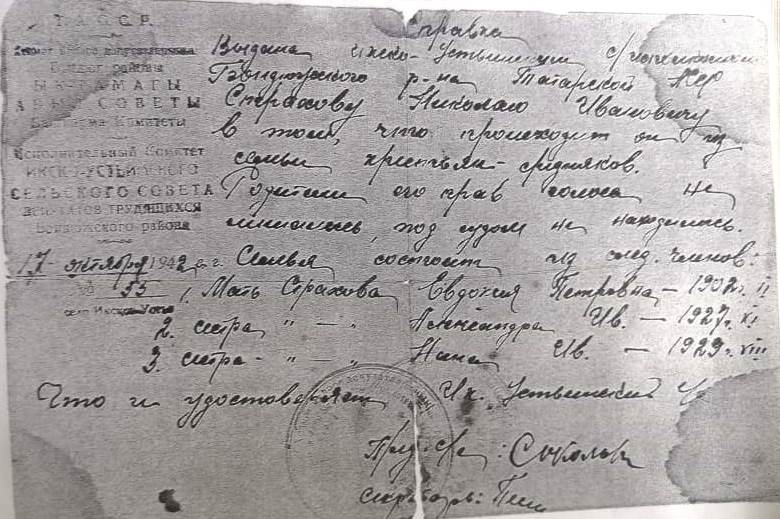 Т.А.С.С.Р.
районы
СОВЕТЫ
Комитеты
Исполнительный Комитет
ИКСКО-УСТЬИНСКОГО
СЕЛЬСКОГО СОВЕТА
ДЕПУТАТОВ ТРУДЯЩИХСЯ
Бондюжского района
17 октября 1942 г.
№ 53
село Икско-Устье
Справка
Выдана Икско-Устьинским с/исполкомом
Бондюжского р-на Татарской АССР
Страхову Николаю Ивановичу
в том, что происходит он из
семьи крестьян-средняков.
Родители его прав голоса не
лишались, под судом не находились.
Семья состоит из след. членов:
1. Мать Страхова Евдокия Петровна – 1902 г. II
2. сестра " — " Александра Ив. – 1927 г. XI
3. сестра - " — " Нина Ив. – 1929 г. VIII
Что и удостоверяет Ик. Устьинский
Пред. : Соколов
секретарь: